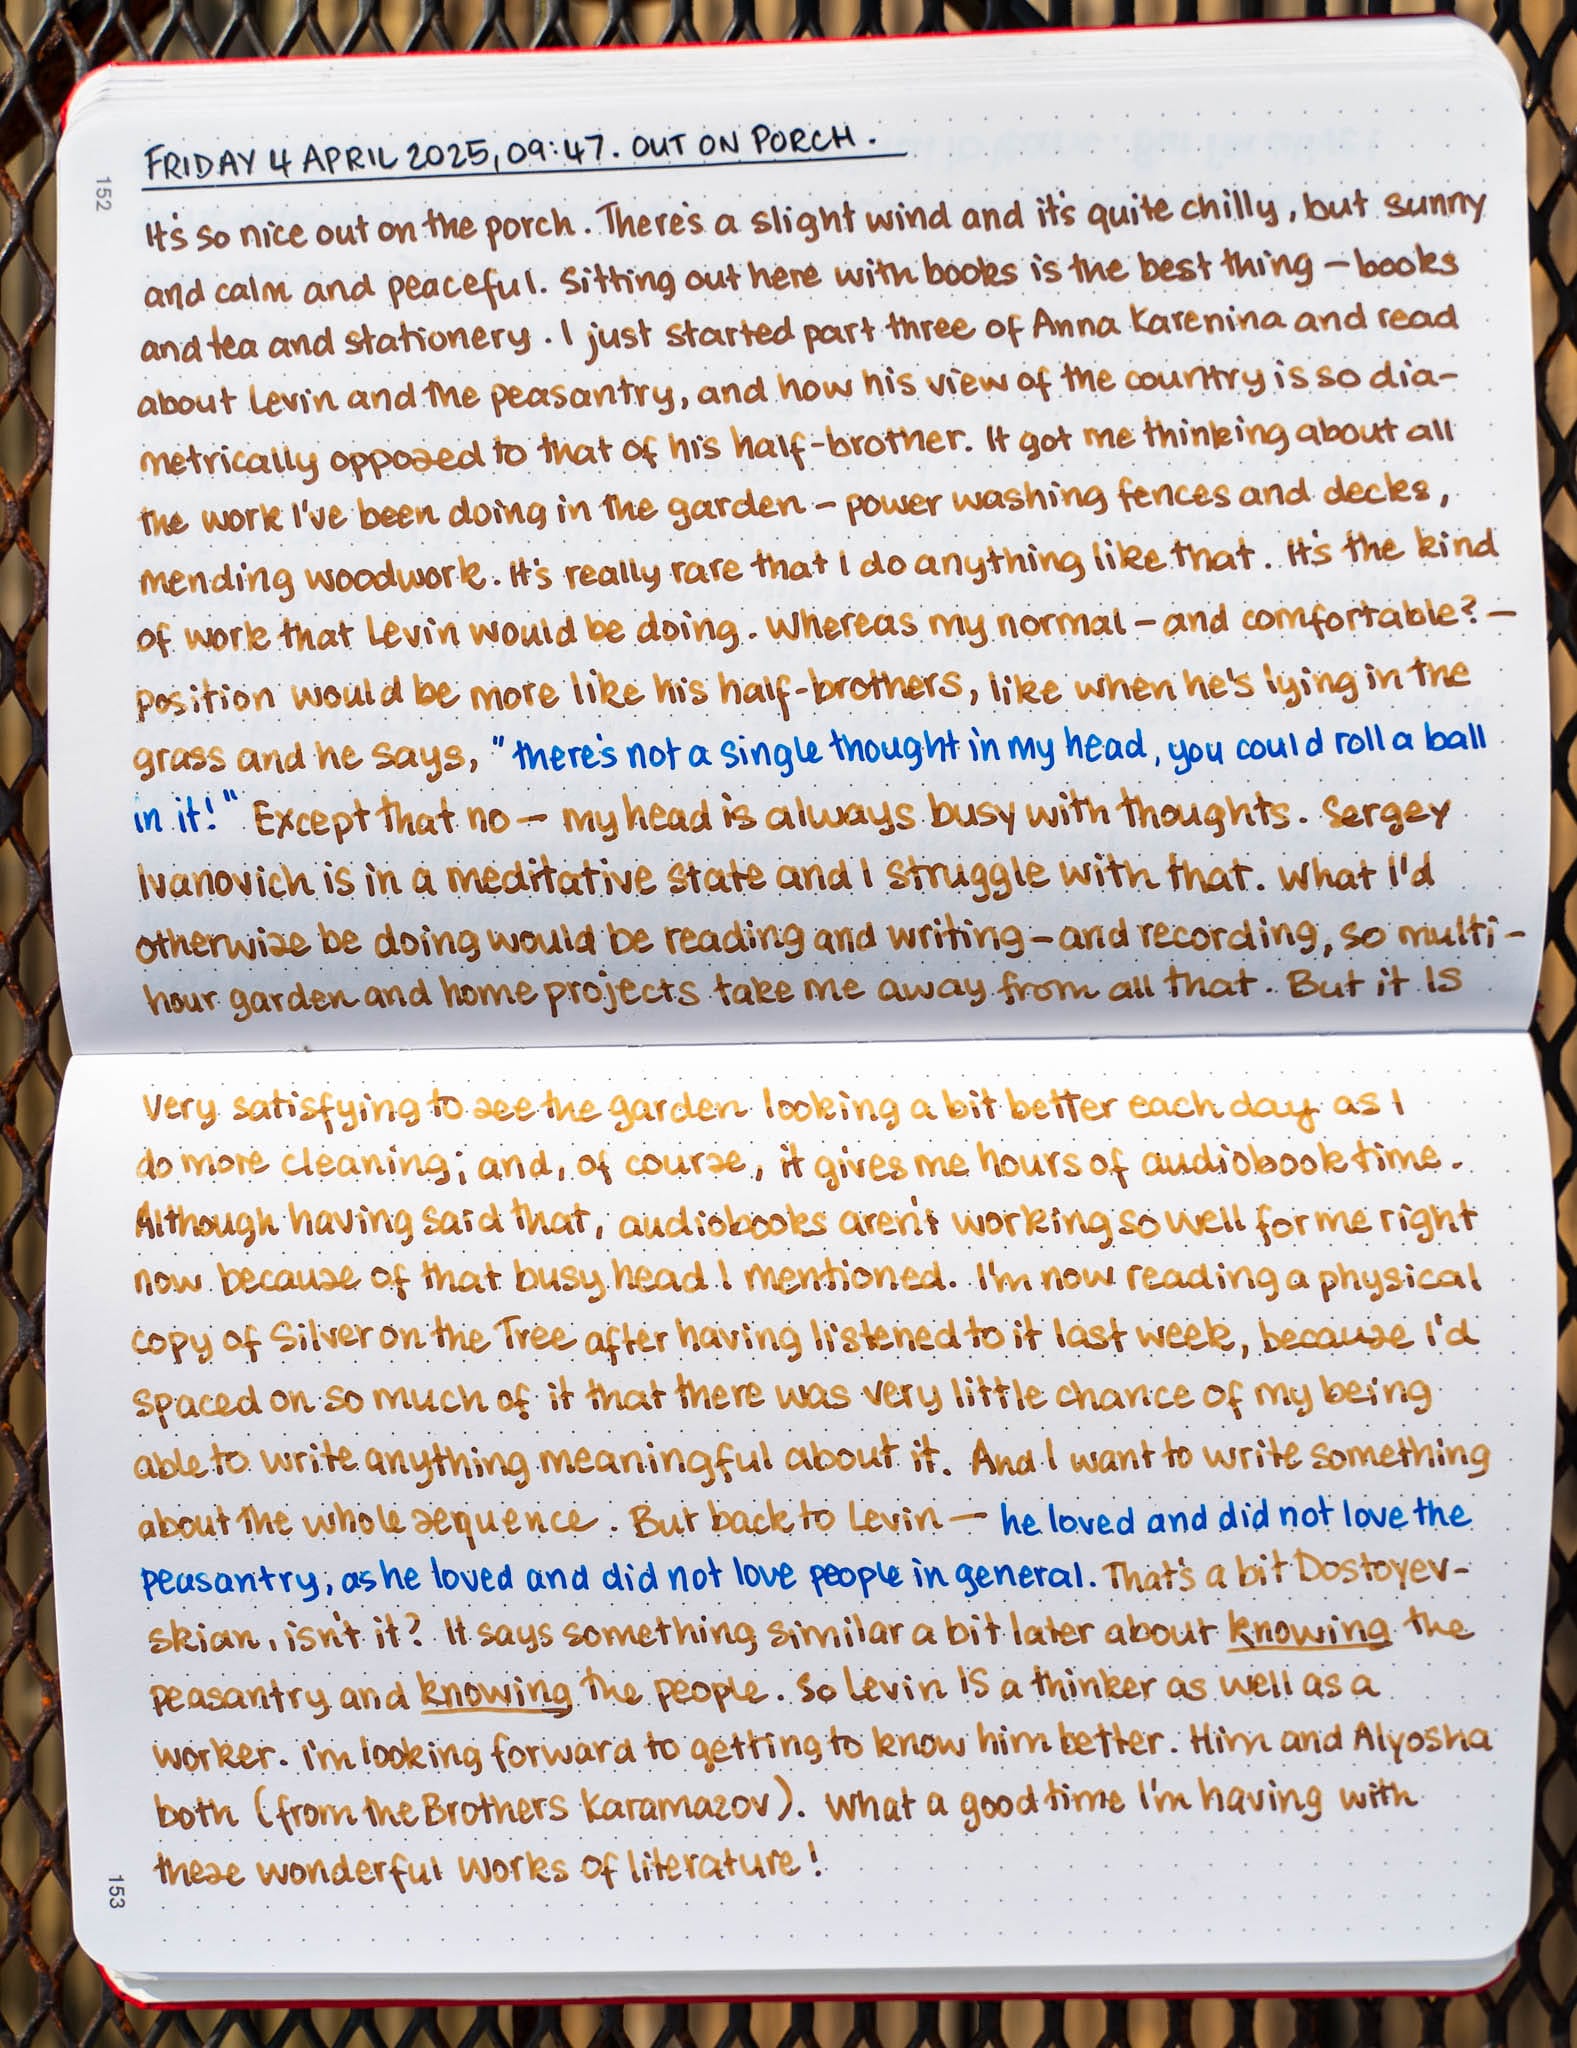 152
FRIDAY 4 APRIL 2025, 09:47. OUT ON PORCH.
It's so nice out on the porch. There's a slight wind and it's quite chilly, but sunny
and calm and peaceful. Sitting out here with books is the best thing – books
and tea and stationery. I just started part three of Anna Karenina and read
about Levin and the peasantry, and how his view of the country is so dia-
metrically opposed to that of his half-brother. It got me thinking about all
the work I've been doing in the garden – power washing fences and decks,
mending woodwork. It's really rare that I do anything like that. It's the kind
of work that Levin would be doing. Whereas my normal – and comfortable? –
position would be more like his half-brothers, like when he's lying in the
grass and he says, "there's not a single thought in my head, you could roll a ball
in it!" Except that no – my head is always busy with thoughts. Sergey
Ivanovich is in a meditative state and I struggle with that. What I'd
otherwise be doing would be reading and writing – and recording, so multi-
hour garden and home projects take me away from all that. But it IS
very satisfying to see the garden looking a bit better each day as I
do more cleaning; and, of course, it gives me hours of audiobook time.
Although having said that, audiobooks aren't working so well for me right
now because of that busy head I mentioned. I'm now reading a physical
copy of Silver on the Tree after having listened to it last week, because I'd
spaced on so much of it that there was very little chance of my being
able to write anything meaningful about it. And I want to write something
about the whole sequence. But back to Levin – he loved and did not love the
peasantry, as he loved and did not love people in general. That's a bit Dostoyev-
skian, isn't it? It says something similar a bit later about knowing the
peasantry and knowing the people. So Levin IS a thinker as well as a
worker. I'm looking forward to getting to know him better. Him and Alyosha
both (from the Brothers Karamazov). What a good time I'm having with
these wonderful works of literature!
153